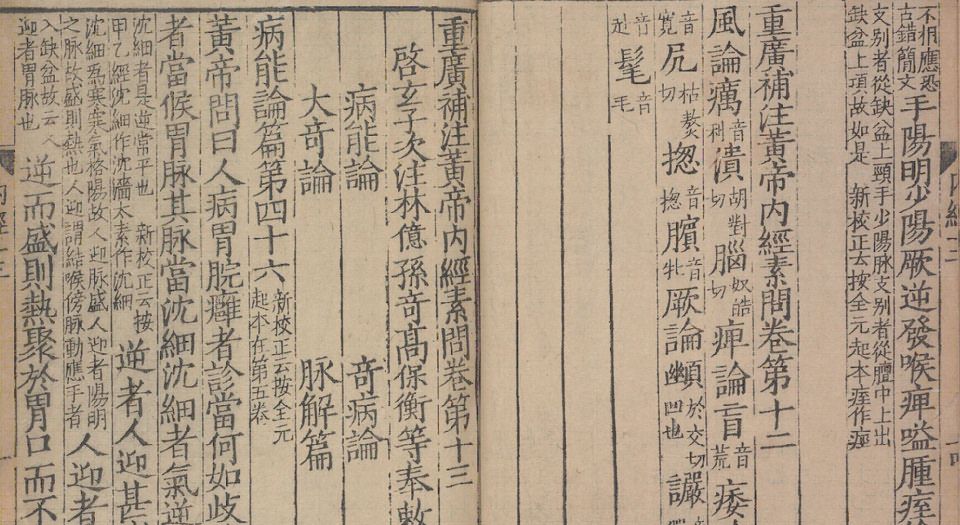 不相應恐
古錯簡文
手陽明少陽厥逆發喉痺嗌腫痓
文別者從缺盆上頸手少陽脉支別者從膻中上出
缺盆上項故如是　新校正云按全元起本痓作痙
重廣補注黃帝內經素問卷第十二
風論癘音利潰胡對切腦奴皓切痺論肓音荒痿
音寬尻枯熬切揔音摠臏音牝厥論 於交切凹也讝
音起髦音毛
重廣補注黃帝內經素問卷第十三
啓玄子次注林億孫奇高保衡等奉敕
病能論　奇病論
大奇論　脉解篇
病能論篇第四十六
新校正云按全元
起本在第五卷
黃帝問曰人病胃脘癰者診當何如歧
者當候胃脉其脉當沈細沈細者氣逆
沈細者是逆常平也　新校正云按
甲乙經沈細作沈濇太素作沈細
逆者人迎甚
沈細爲寒寒氣格陽故人迎脉盛人迎者陽明
之脉故盛則熱也人迎謂結喉傍脉動應手者
人迎者
入缺盆故云人
迎者胃脉也
逆而盛則熱聚於胃口而不